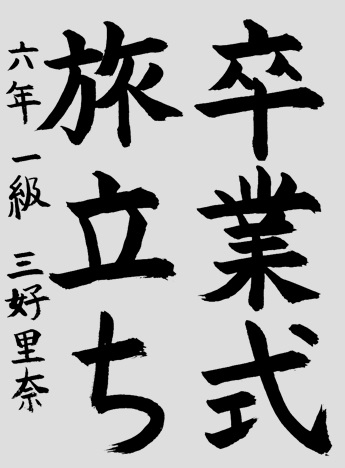 卒業式
旅立ち
六年 一級 三好里奈